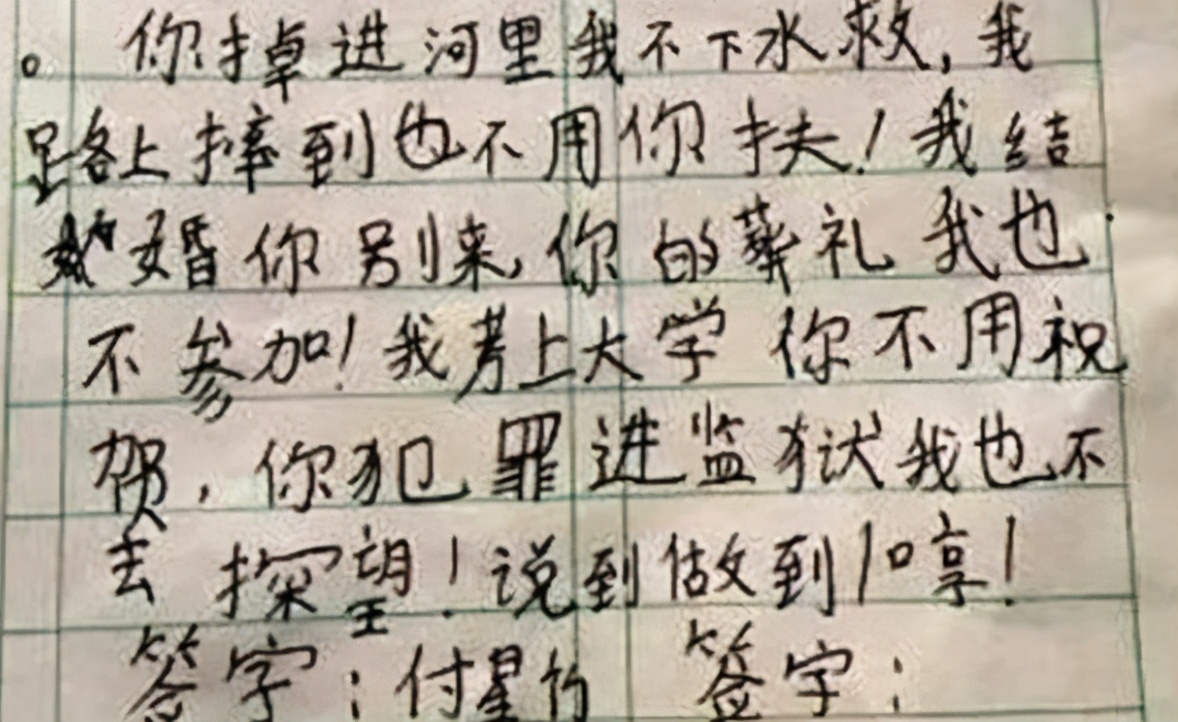 。你掉进河里我不下水救,我
路上摔到也不用你扶!我结
婚你别来,你的葬礼我也
不参加!我考上大学你不用祝
贺,你犯罪进监狱我也不
去探望!说到做到!哼!
签字:付星竹 签字: